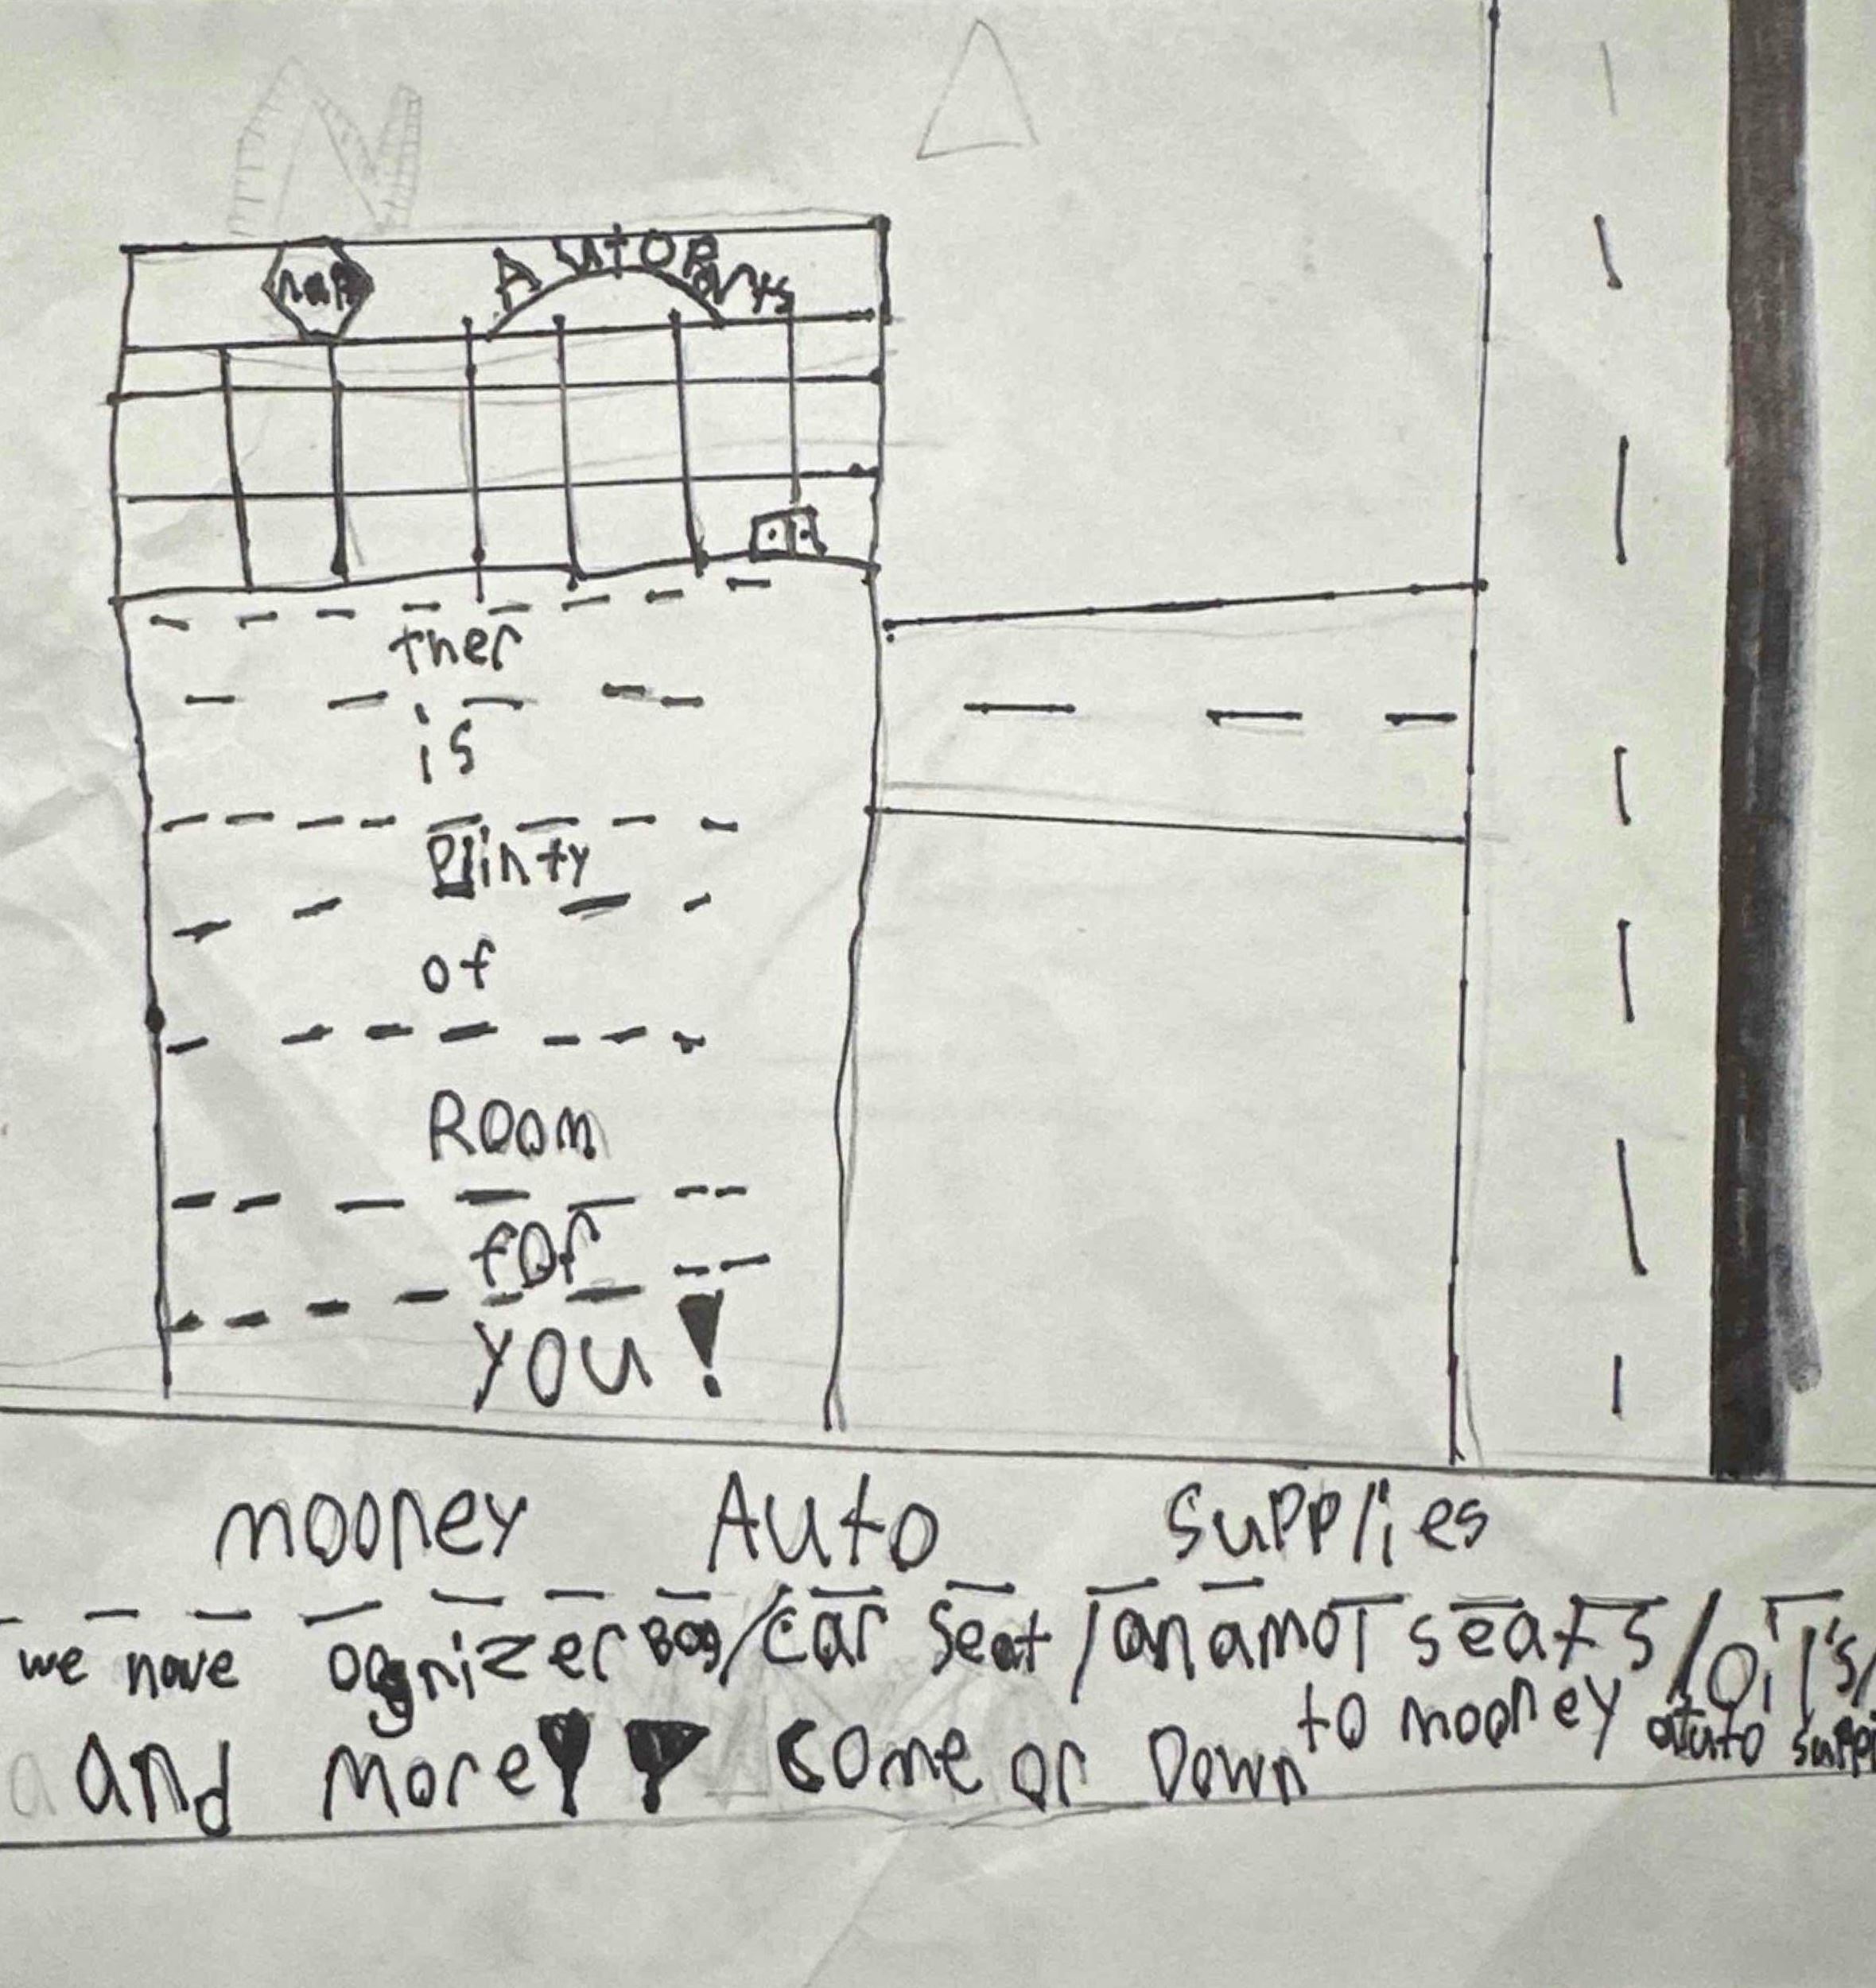 napa
AUTO Parts
ther
is
Plinty
of
ROOM
for
you!
mooney Auto Supplies
we have oggnizer Bag/car seat/anamol seats/oil's/
and more!! come or Down to mooney